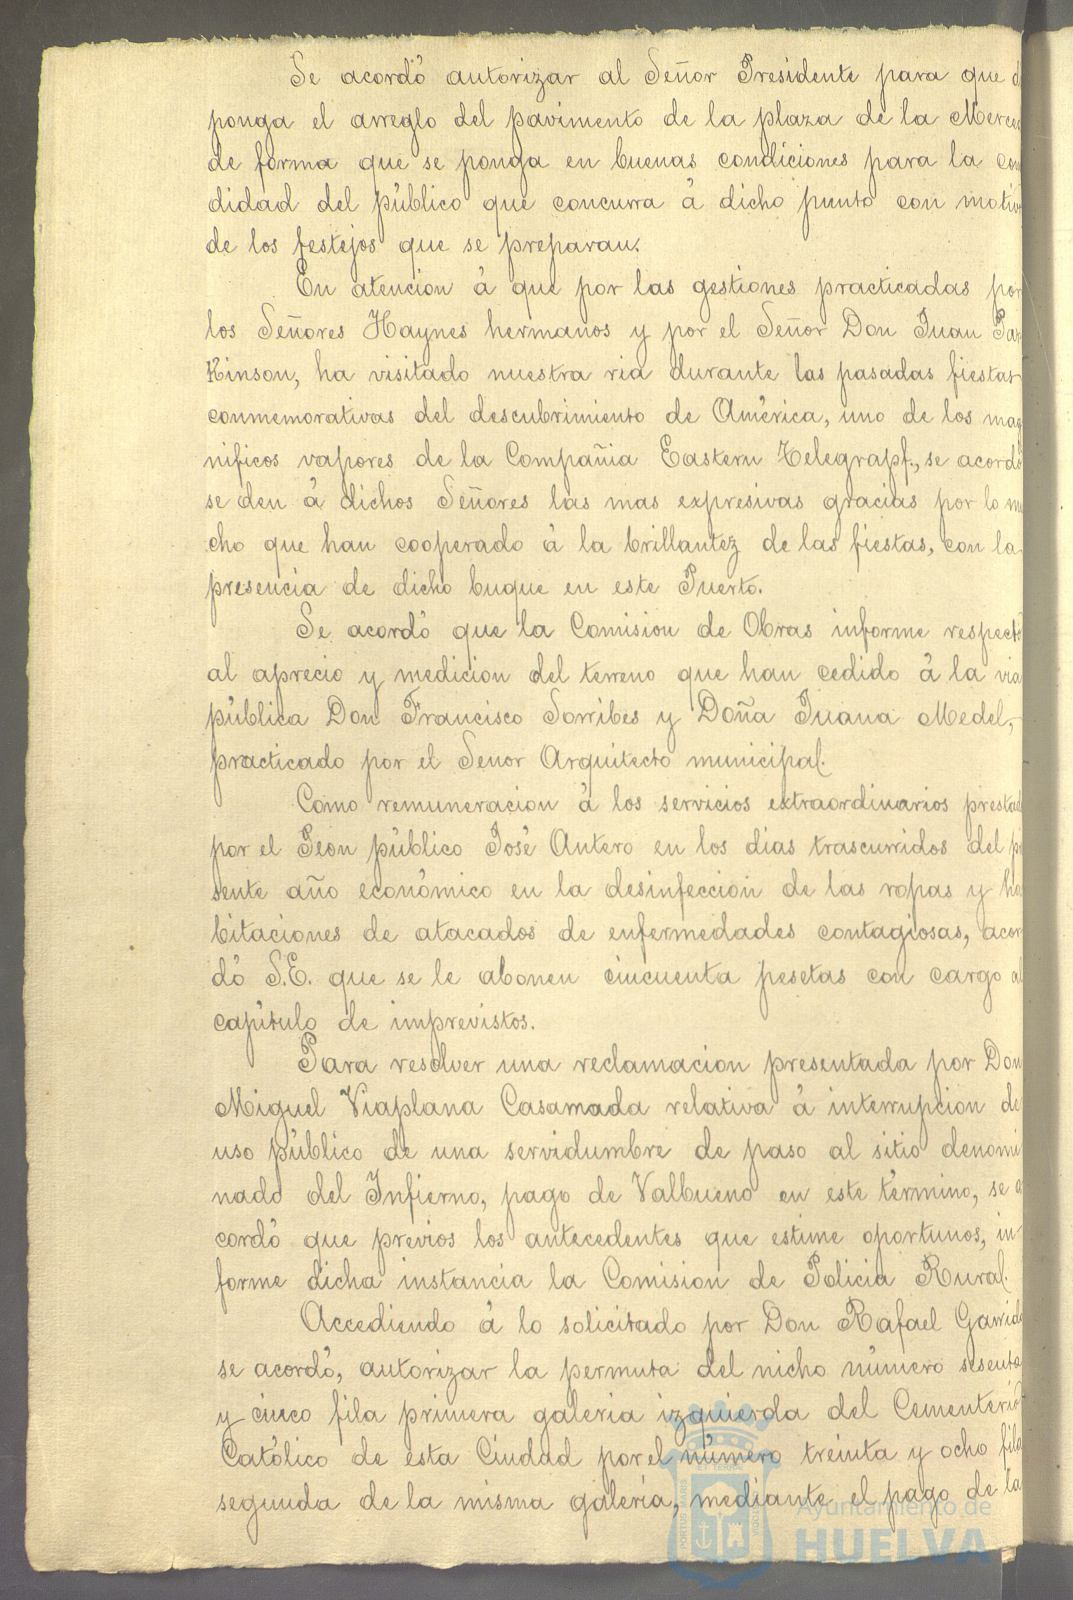 Se acordó autorizar al Señor Presidente para que d
ponga el arreglo del pavimento de la plaza de la Merced
de forma que se ponga en buenas condiciones para la com
didad del público que concurra á dicho punto con motivo
de los festejos que se preparan.
En atencion á que por las gestiones practicadas por
los Señores Haynes hermanos y por el Señor Don Juan Par
Kinson, ha visitado nuestra ria durante las pasadas fiestas
conmemorativas del descubrimiento de América, uno de los mag
nificos vapores de la Compañia Eastern Telegrapf., se acordó
se den á dichos Señores las mas expresivas gracias por lo mu
cho que han cooperado á la brillantez de las fiestas, con la
presencia de dicho buque en este Puerto.
Se acordó que la Comision de Obras informe respecto
al aprecio y medicion del terreno que han cedido á la via
pública Don Francisco Sorribes y Doña Juana Medel,
practicado por el Senor Arquitecto municipal.
Como remuneracion á los servicios extraordinarios prestad
por el Peon público José Antero en los dias trascurridos del pr
sente año económico en la desinfeccion de las ropas y ha
bitaciones de atacados de enfermedades contagiosas, acor
dó S.E. que se le abonen cincuenta pesetas con cargo al
capítulo de imprevistos.
Para resolver una reclamacion presentada por Don
Miguel Viaplana Casamada relativa á interrupcion de
uso público de una servidumbre de paso al sitio denomi
nado del Infierno, pago de Valbueno en este término, se a
cordó que previos los antecedentes que estime oportunos, in-
forme dicha instancia la Comision de Policia Rural.
Accediendo á lo solicitado por Don Rafael Garrido
se acordó, autorizar la permuta del nicho número sesenta
y cinco fila primera galeria izquierda del Cementerio
Católico de esta Ciudad por el número treinta y ocho fila
segunda de la misma galeria, mediante el pago de la
Ayuntamiento de
HUELVA